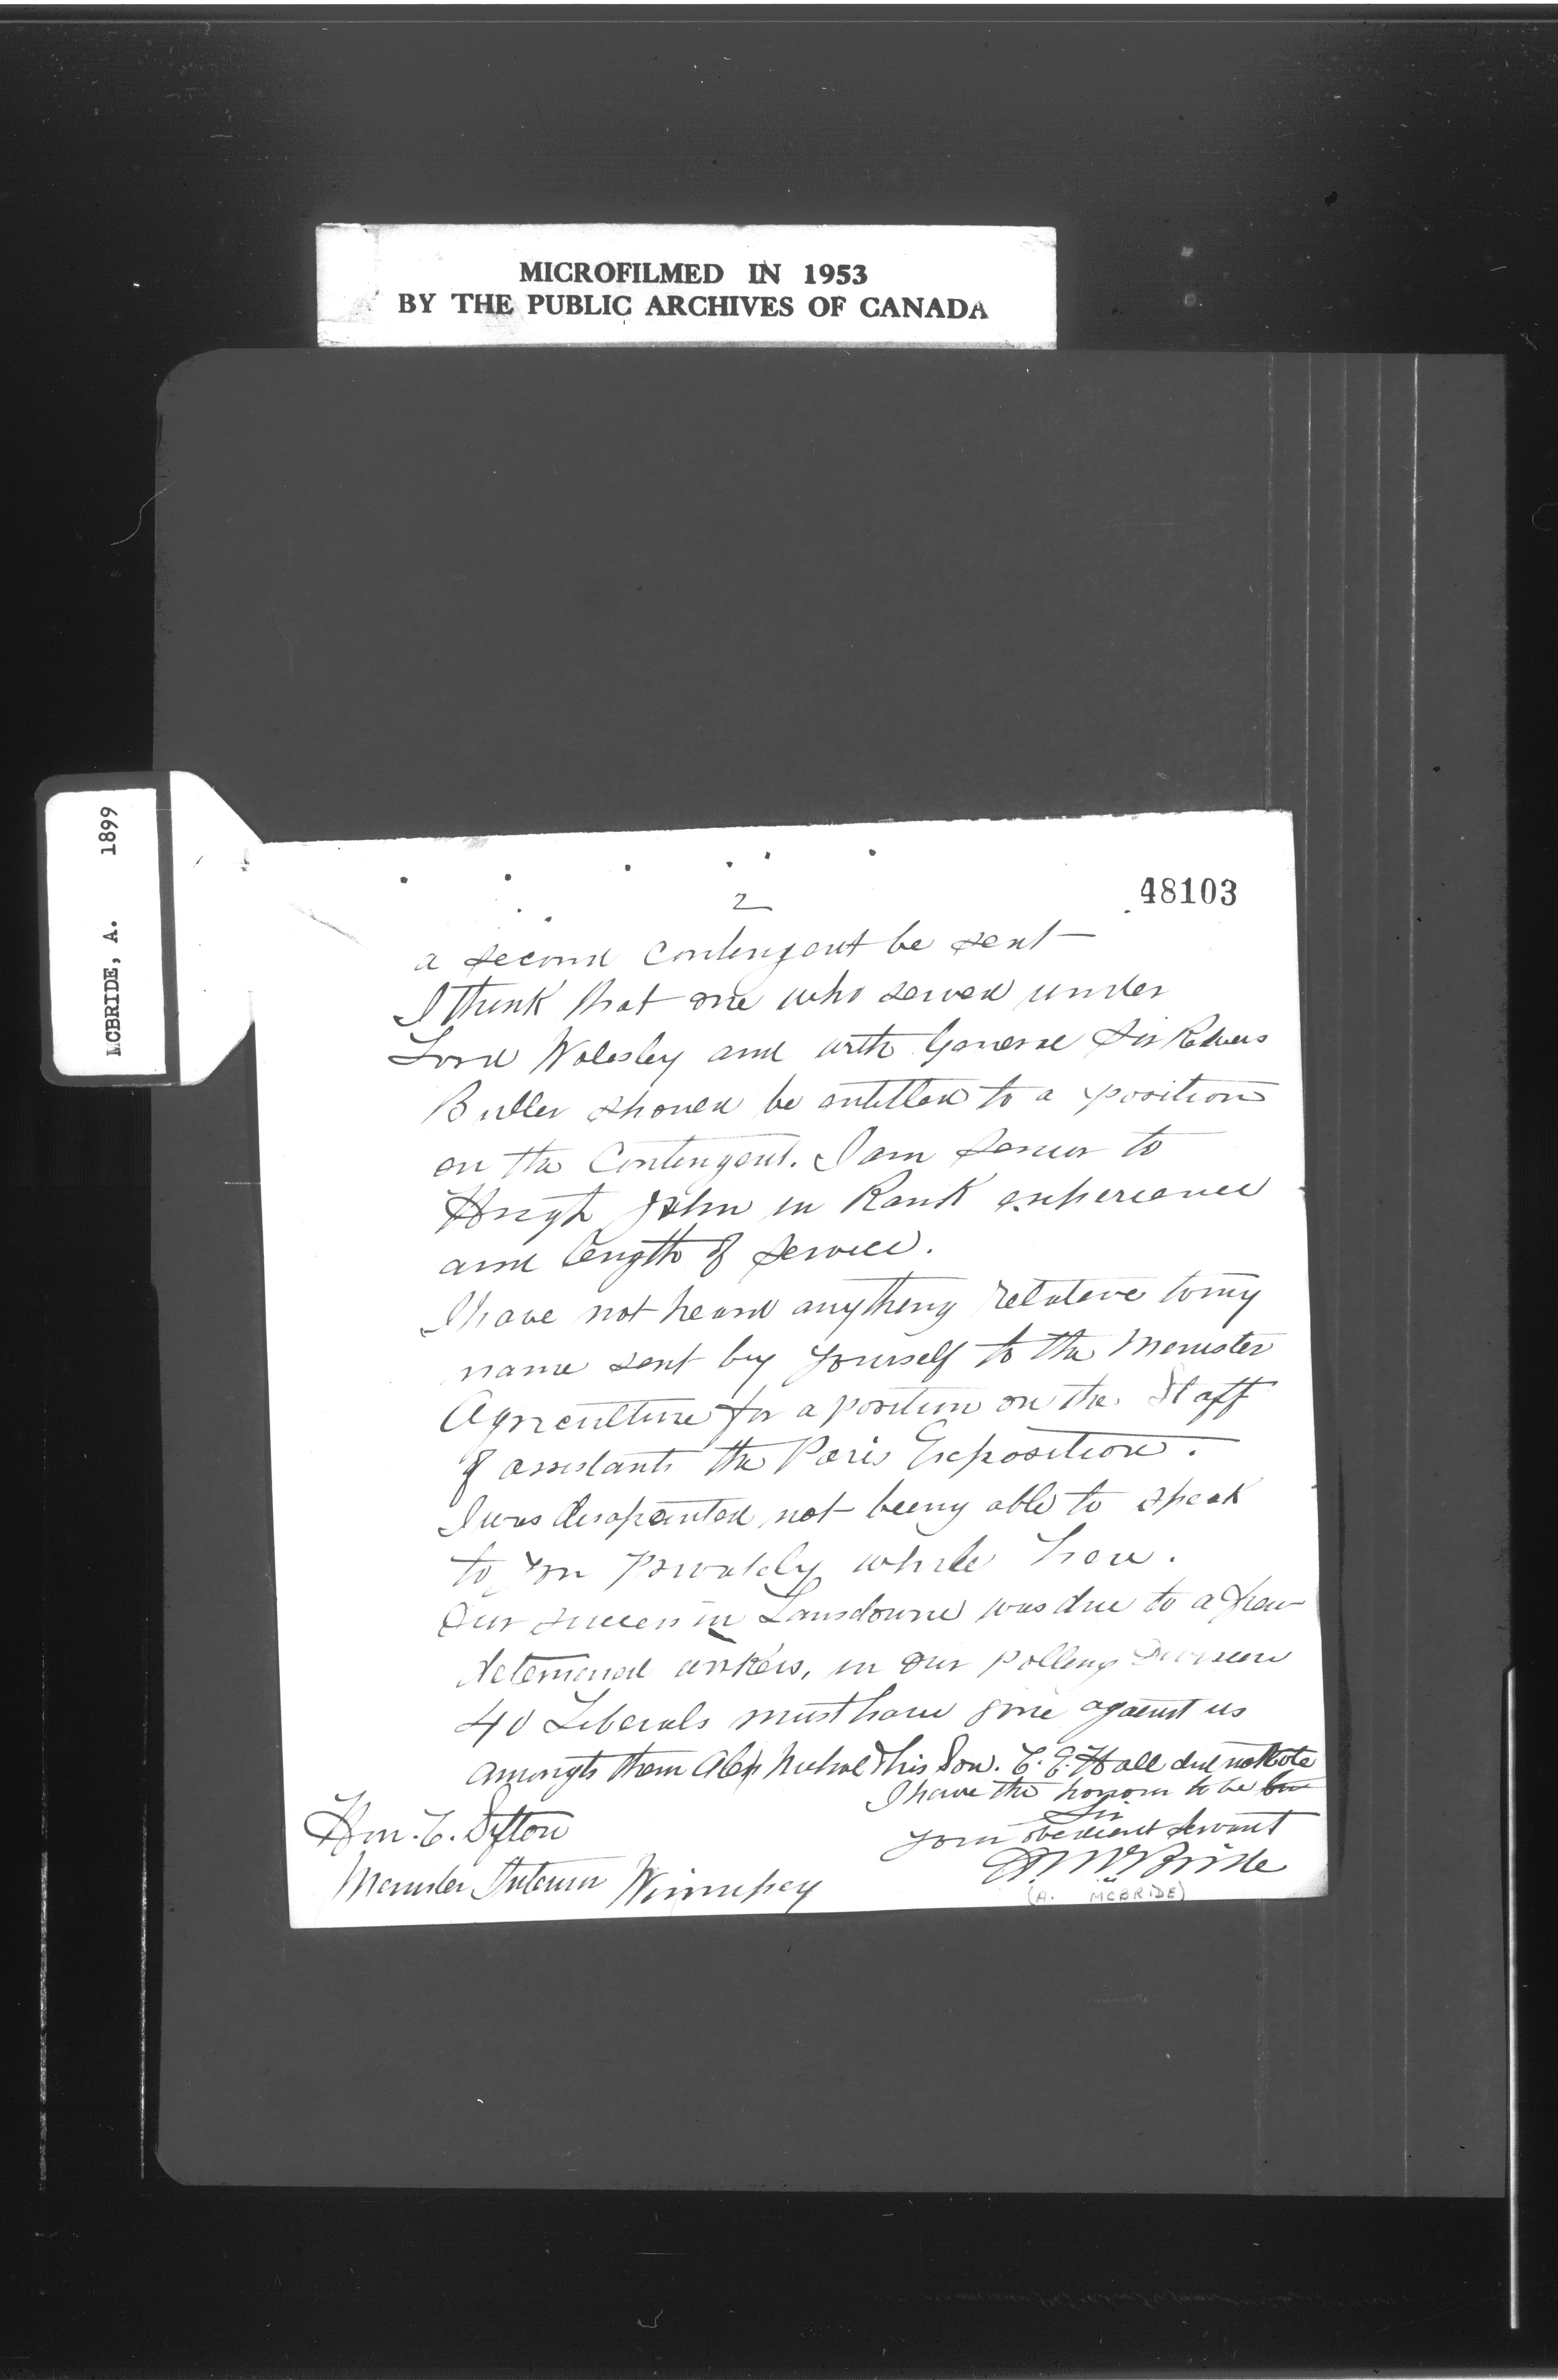 MICROFILMED IN 1953
BY THE PUBLIC ARCHIVES OF CANADA
MCBRIDE, A. 1899
48103
2
a second contingent be sent
I think that one who served under
Lord Wolesley and with General Sir Redvers
Buller should be entitled to a position
on the Contingent. I am Senior to
Hugh John in Rank experience
and length of service.
I have not heard anything relative to my
name sent by yourself to the Minister
Agriculture for a position on the Staff
of assistants the Paris Exposition.
I was disapointed not being able to speak
to you privately while here.
Our success in Lansdowne was due to a few
determined workers, in our polling Division
40 Liberals must have gone against us
amongts them Alex Nichol & his Son. C. E. Hall did not vote
I have the honour to be
Sir
your obedient servant
A. McBride
(A. MCBRIDE)
Hon. C. Sifton
Minister Interior Winnipeg